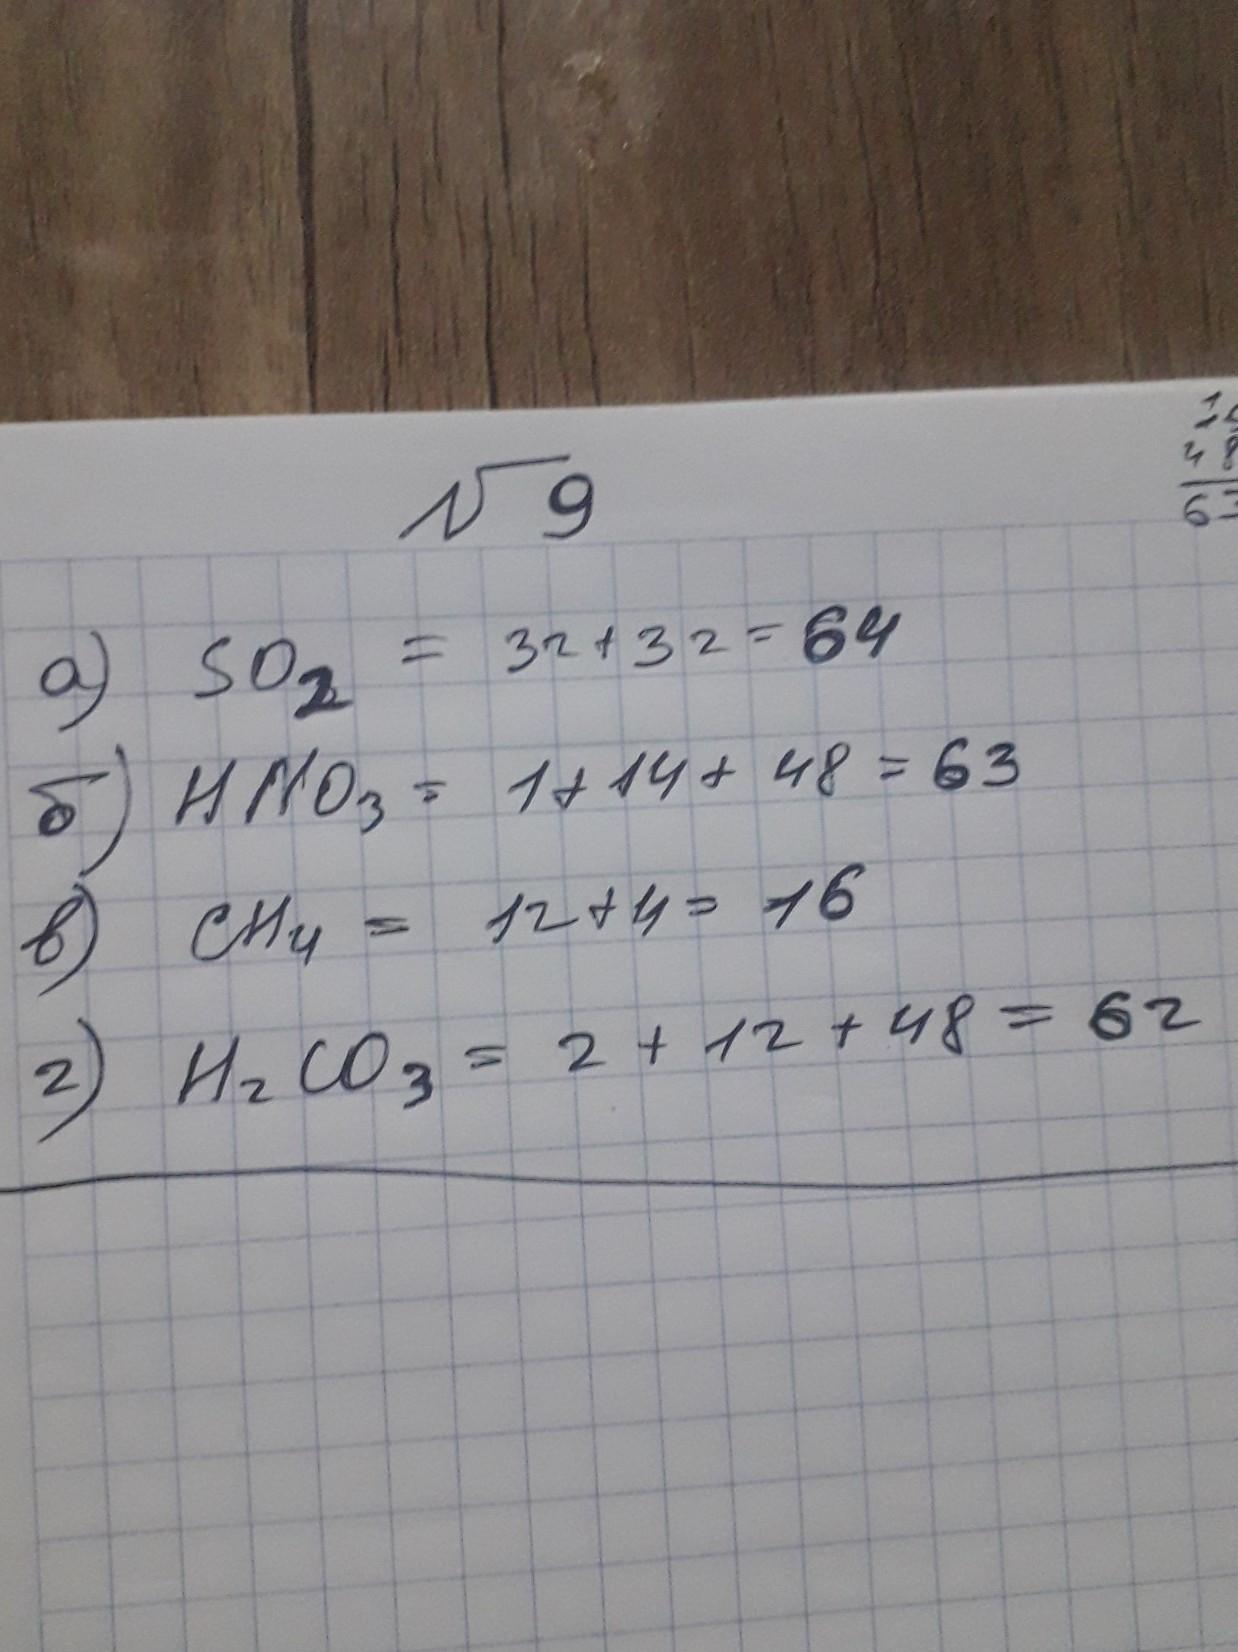 √9
а) SO₂ = 32+32=64
б) HNO₃ = 1+14+48=63
в) CH₄ = 12+4= 16
г) H₂CO₃ = 2+12+48=62